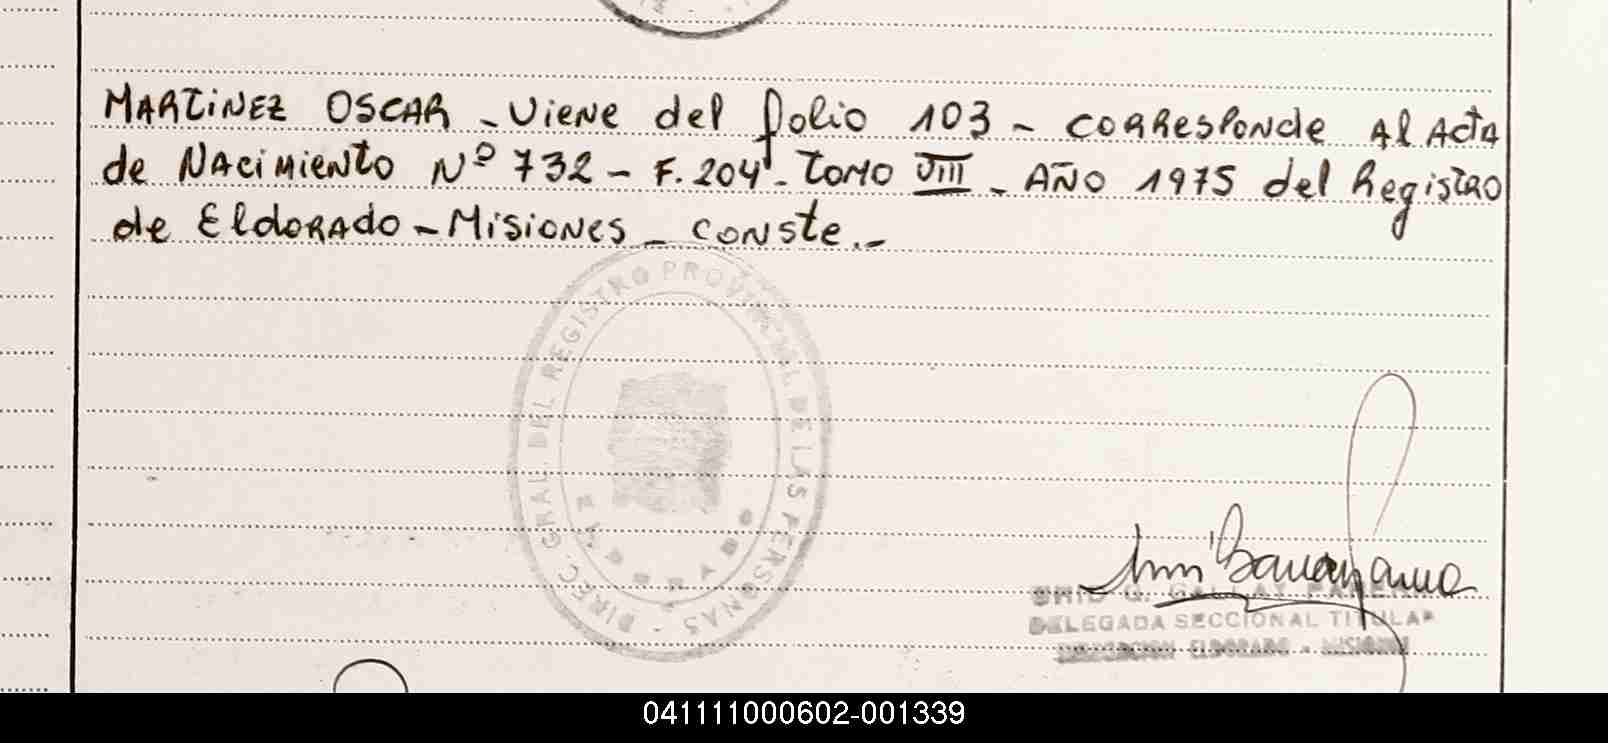 MARTINEZ OSCAR - Viene del folio 103 - corresponde al Acta
de Nacimiento Nº 732 - F. 204. Tomo VIII - AÑO 1975 del Registro
de Eldorado - Misiones - Conste.-
DIREC. GRAL. DEL REGISTRO PROVINCIAL DE LAS PERSONAS -
DELEGADA SECCIONAL TITULAR
ELDORADO - MISIONES
041111000602-001339